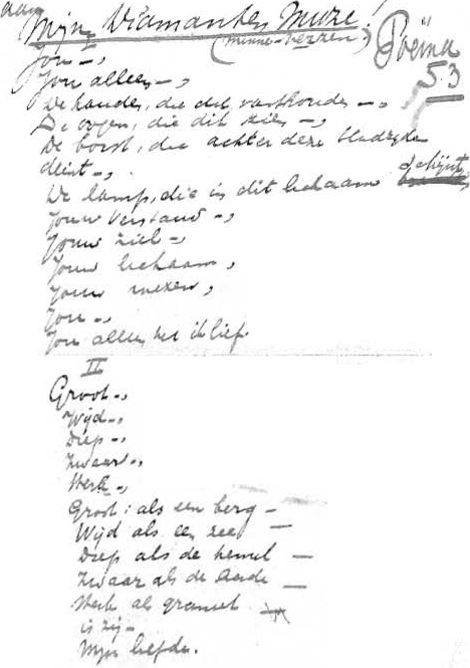 aan
Mijn Diamanten Muze!
(minne-verzen)
Poëma
53
I
Jou -,
Jou alleen -,
De handen, die dit vasthouden -,
De oogen, die dit zien -,
De borst, die achter deze bladzijde
deint -,
De lamp, die in dit lichaam schijnt,
Jouw verstand -,
Jouw ziel -,
Jouw lichaam,
Jouw wezen,
Jou -,
Jou alleen heb ik lief.
II
Groot -,
Wijd -,
Diep -,
Zwaar -,
Sterk -,
Groot: als een berg -
Wijd als een zee -
Diep als de hemel -
Zwaar als de Aarde -
Sterk als graniet -
is zij -
Mijn liefde.